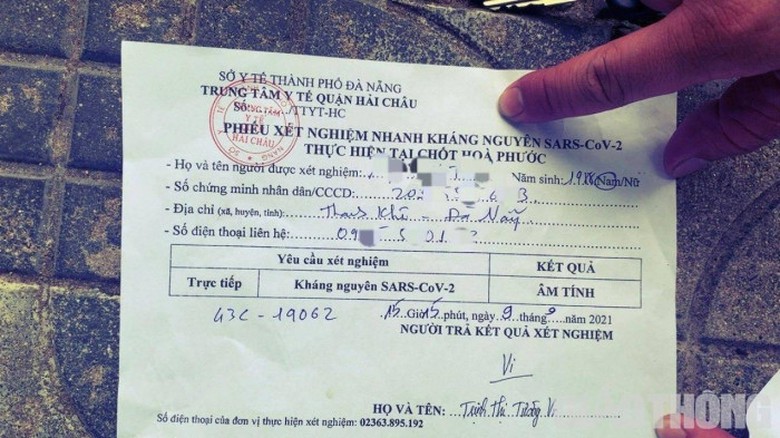 SỞ Y TẾ THÀNH PHỐ ĐÀ NẴNG
TRUNG TÂM Y TẾ QUẬN HẢI CHÂU
Số: /TTYT-HC
TRUNG TÂM
Y TẾ
HẢI CHÂU
PHIẾU XÉT NGHIỆM NHANH KHÁNG NGUYÊN SARS-CoV-2
THỰC HIỆN TẠI CHỐT HOÀ PHƯỚC
- Họ và tên người được xét nghiệm: Năm sinh: Nam/Nữ
- Số chứng minh nhân dân/CCCD: 3
- Địa chỉ (xã, huyện, tỉnh): Thanh Khê - Đà Nẵng
- Số điện thoại liên hệ: 09 5 01
Yêu cầu xét nghiệm KẾT QUẢ
Trực tiếp Kháng nguyên SARS-CoV-2 ÂM TÍNH
43C - 19062 15 Giờ 15 phút, ngày 9 tháng 9 năm 2021
NGƯỜI TRẢ KẾT QUẢ XÉT NGHIỆM
Vi
HỌ VÀ TÊN: Trịnh Thị Tường Vi
Số điện thoại của đơn vị thực hiện xét nghiệm: 02363.895.192
THÔNG